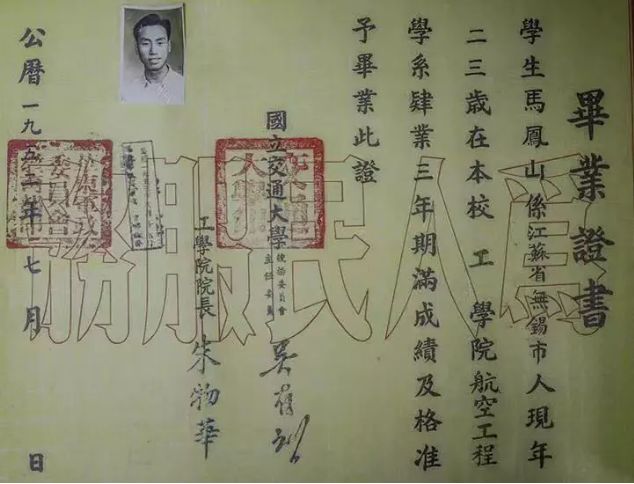 畢業證書
學生馬鳳山係江蘇省無錫市人現年
二三歲在本校工學院航空工程
學系肄業三年期滿成績及格准
予畢業此證
國立交通大學校務委員會主任委員 吳有訓
工學院院長 朱物華
公曆一九五二年七月 日
為人民服務